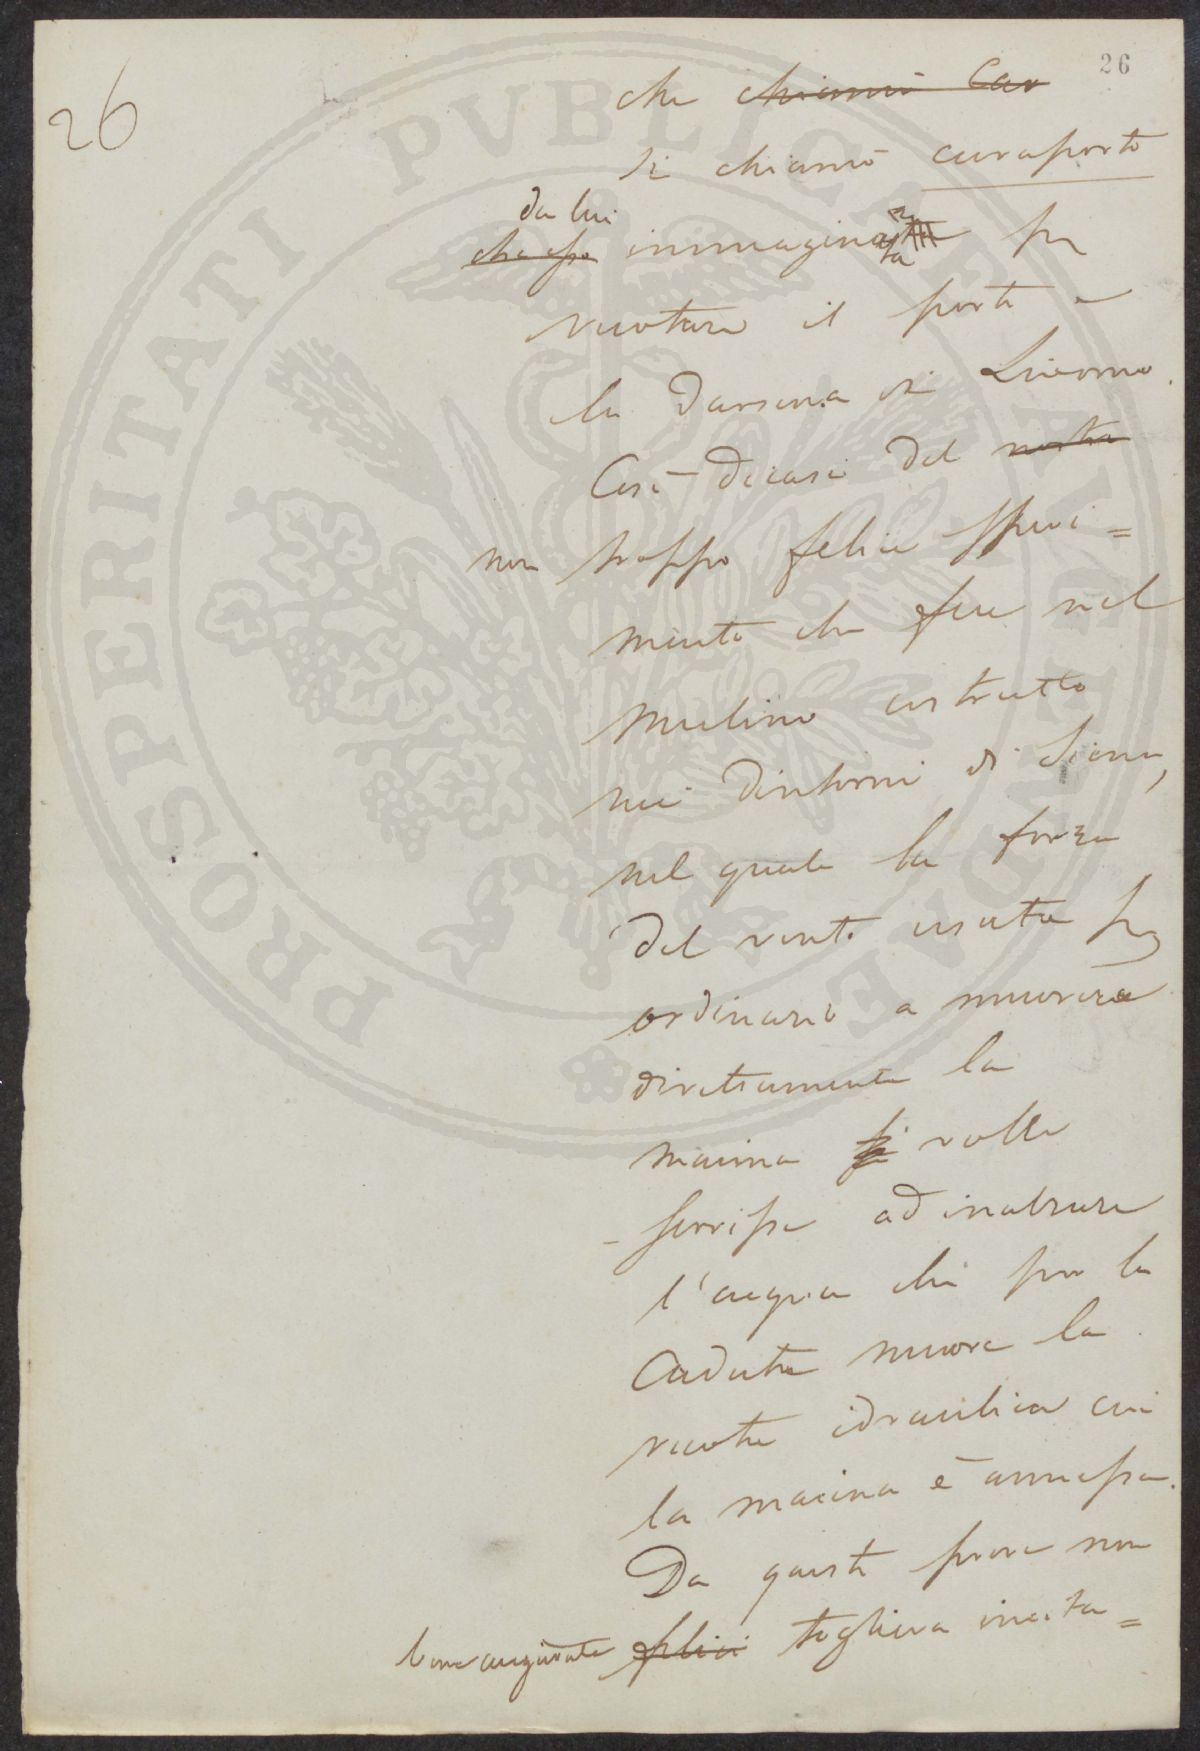 26
26
che chiamò Cav
si chiamò curaporto
da lui
che esso immaginata per
vuotare il porto e
la Darsena di Livorno.
Così dicasi del nostro
non troppo felice speri=
mento che fece nel
mulino costrutto
nei dintorni di Siena,
nel quale la forza
del vento usata per
ordinario a muovere
direttamente la
macina si volle
servisse ad inalzare
l'acqua che per la
caduta muove la
ruota idraulica cui
la macina è annessa.
Da queste prove non
bene augurate felici toglieva incita=
PROSPERITATI PVBLICAE AVGENDAE